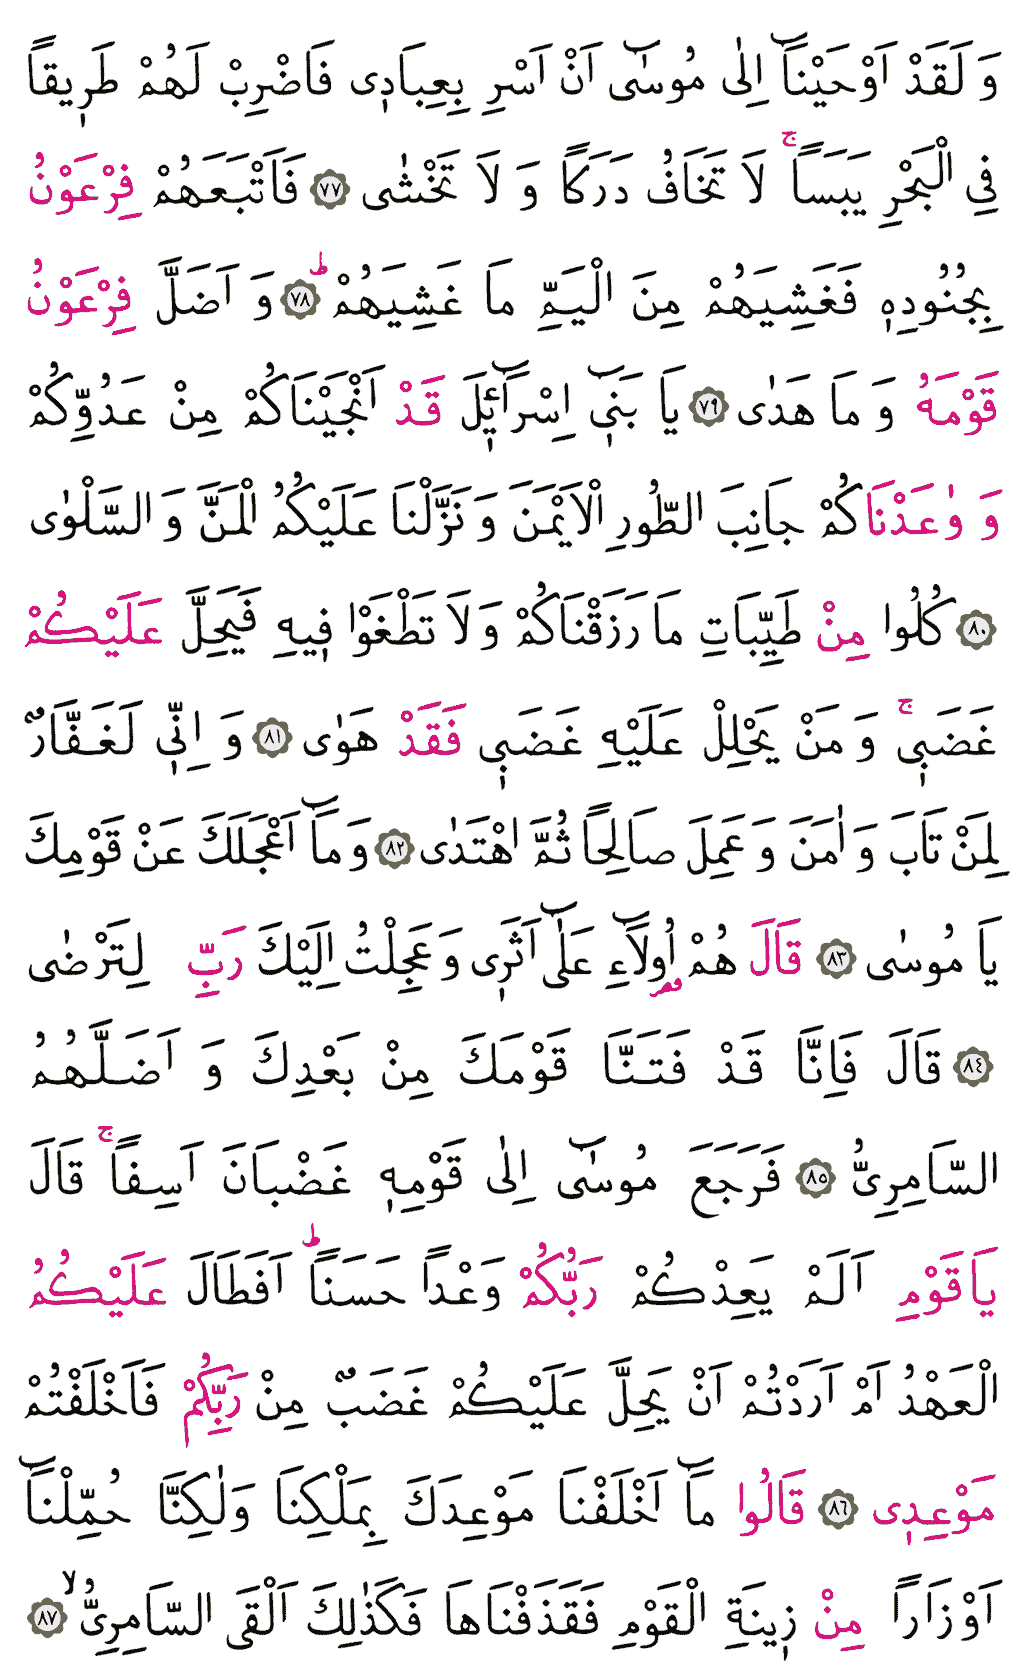 وَ لَقَدْ اَوْحَيْنَٓا اِلٰى مُوسٰٓى اَنْ اَسْرِ بِعِبَادٖى فَاضْرِبْ لَهُمْ طَرٖيقاً
فِي الْبَحْرِ يَبَساًۚ لَا تَخَافُ دَرَكاً وَ لَا تَخْشٰى ﴿٧٧﴾ فَاَتْبَعَهُمْ فِرْعَوْنُ
بِجُنُودِهٖ فَغَشِيَهُمْ مِنَ الْيَمِّ مَا غَشِيَهُمْؕ ﴿٧٨﴾ وَ اَضَلَّ فِرْعَوْنُ
قَوْمَهُ وَ مَا هَدٰى ﴿٧٩﴾ يَا بَنٖٓى اِسْرَٓائٖلَ قَدْ اَنْجَيْنَاكُمْ مِنْ عَدُوِّكُمْ
وَ وٰعَدْنَاكُمْ جَانِبَ الطُّورِ الْاَيْمَنَ وَ نَزَّلْنَا عَلَيْكُمُ الْمَنَّ وَ السَّلْوٰى
﴿٨٠﴾ كُلُوا مِنْ طَيِّبَاتِ مَا رَزَقْنَاكُمْ وَ لَا تَطْغَوْا فٖيهِ فَيَحِلَّ عَلَيْكُمْ
غَضَبٖىۚ وَ مَنْ يَحْلِلْ عَلَيْهِ غَضَبٖى فَقَدْ هَوٰى ﴿٨١﴾ وَ اِنّٖى لَغَفَّارٌ
لِمَنْ تَابَ وَ اٰمَنَ وَ عَمِلَ صَالِحاً ثُمَّ اهْتَدٰى ﴿٨٢﴾ وَ مَٓا اَعْجَلَكَ عَنْ قَوْمِكَ
يَا مُوسٰى ﴿٨٣﴾ قَالَ هُمْ اُولَٓاءِ عَلٰٓى اَثَرٖى وَ عَجِلْتُ اِلَيْكَ رَبِّ لِتَرْضٰى
﴿٨٤﴾ قَالَ فَاِنَّا قَدْ فَتَنَّا قَوْمَكَ مِنْ بَعْدِكَ وَ اَضَلَّهُمُ
السَّامِرِىُّ ﴿٨٥﴾ فَرَجَعَ مُوسٰٓى اِلٰى قَوْمِهٖ غَضْبَانَ اَسِفاًۚ قَالَ
يَاقَوْمِ اَلَمْ يَعِدْكُمْ رَبُّكُمْ وَعْداً حَسَناًؕ اَفَطَالَ عَلَيْكُمُ
الْعَهْدُ اَمْ اَرَدْتُمْ اَنْ يَحِلَّ عَلَيْكُمْ غَضَبٌ مِنْ رَبِّكُمْ فَاَخْلَفْتُمْ
مَوْعِدٖى ﴿٨٦﴾ قَالُوا مَٓا اَخْلَفْنَا مَوْعِدَكَ بِمَلْكِنَا وَلٰكِنَّا حُمِّلْنَٓا
اَوْزَاراً مِنْ زٖينَةِ الْقَوْمِ فَقَذَفْنَاهَا فَكَذٰلِكَ اَلْقَى السَّامِرِىُّۙ ﴿٨٧﴾